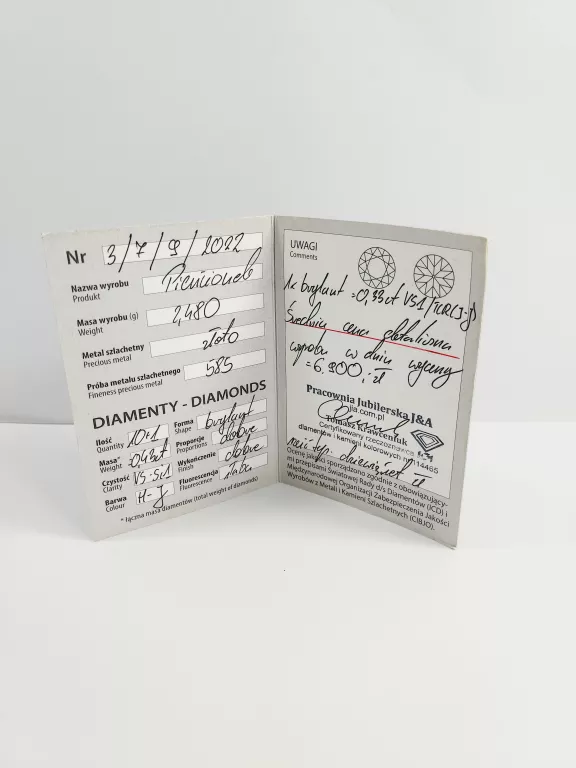 Nr 3/7/9/2022
Nazwa wyrobu Pierścionek
Produkt
Masa wyrobu (g) 2,480
Weight
Metal szlachetny złoto
Precious metal
Próba metalu szlachetnego 585
Fineness precious metal
DIAMENTY - DIAMONDS
Ilość 10+1 Forma brylant
Quantity Shape
Masa* =0,43ct Proporcje dobre
Weight Proportions
Czystość VS-SI1 Wykończenie dobre
Clarity Finish
Barwa H-J Fluorescencja
Colour Fluorescence
* łączna masa diamentów (total weight of diamonds)
UWAGI
Comments
1x brylant =0,33ct VS1/TCR(I-J)
Średnia cena detaliczna
wyrobu w dniu wyceny
=6.900,- zł
Pracownia Jubilerska J&A
jja.com.pl
Tomasz Krawczuk
Certyfikowany rzeczoznawca
diamentów i kamieni kolorowych nr 14465
dziewięćset zł
Ocenę jakości sporządzono zgodnie z obowiązujący-
mi przepisami Światowej Rady d/s Diamentów (ICD) i
Międzynarodowej Organizacji Zabezpieczenia Jakości
Wyrobów z Metali i Kamieni Szlachetnych (CIBJO).